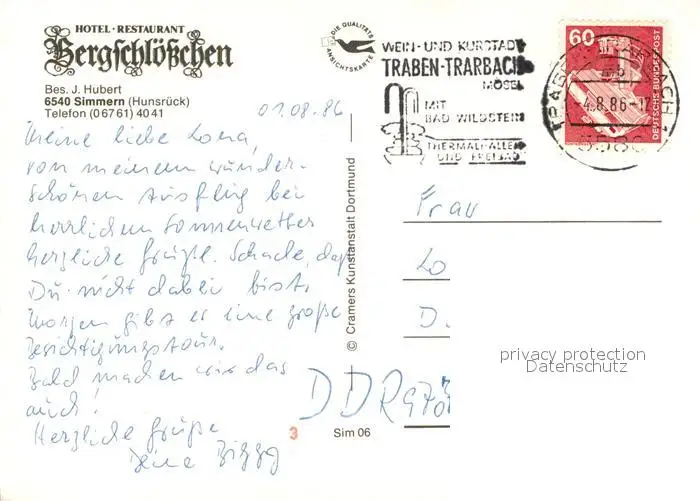 HOTEL·RESTAURANT
Bergschlößchen
Bes. J. Hubert
6540 Simmern (Hunsrück)
Telefon (06761) 4041
DIE QUALITÄTS
ANSICHTSKARTE
WEIN- UND KURSTADT
TRABEN-TRARBACH
MOSEL
MIT
BAD WILDSTEIN
THERMALHALLEN
UND FREIBAD
60
DEUTSCHE BUNDESPOST
-4.8.86-17
01.08.86
Meine liebe Lona,
von meinem wunder-
schönen Ausflug bei
herrlichem Sommerwetter
herzliche Grüße. Schade, daß
Du nicht dabei bist.
Morgen gibt es eine große
Besichtigungstour.
Bald machen wir das
auch!
Herzliche Grüße
Deine
© Cramers Kunstanstalt Dortmund
Frau
Lo
D.
DDR
3
Sim 06
privacy protection
Datenschutz